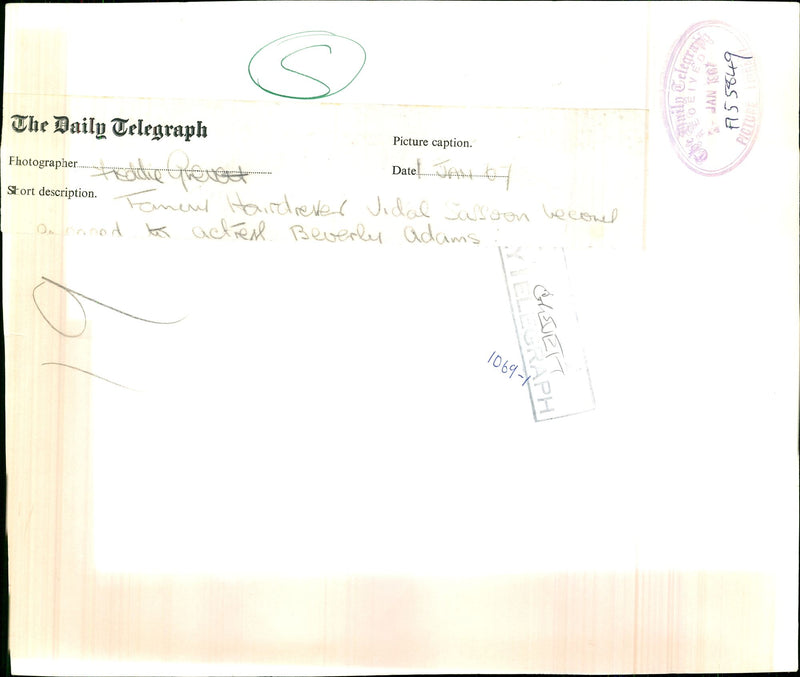 S
The Daily Telegraph
Picture caption.
Photographer
Date 1 JAN 67
Short description.
Famous Hairdresser Vidal Sassoon becomes
to actress Beverly Adams
The Daily Telegraph
RECEIVED
JAN 1967
PICTURE
A155849
Y TELEGRAPH
1069-1